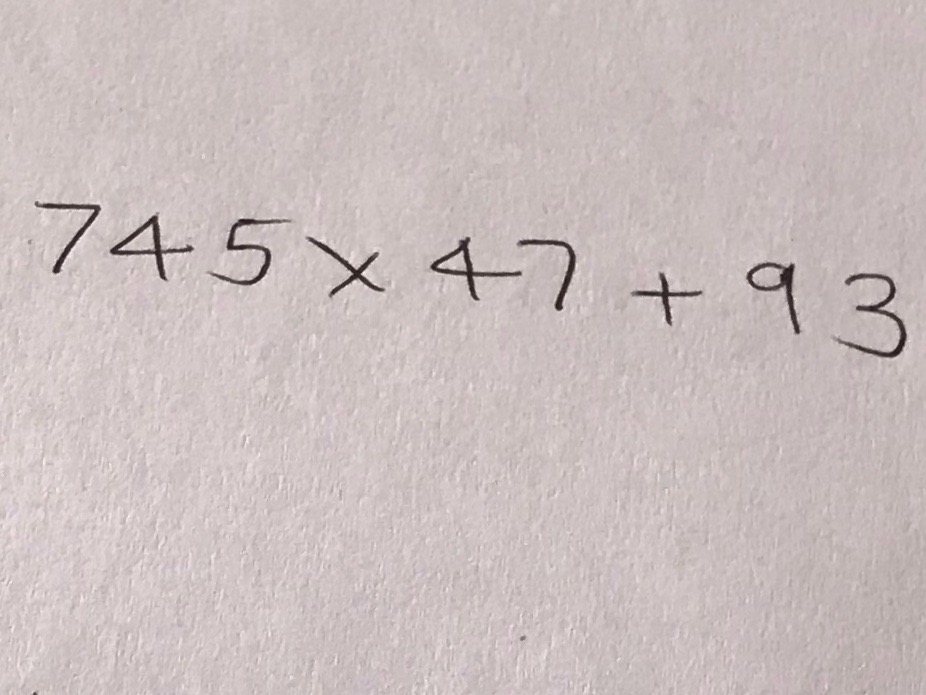 745 × 47 + 93